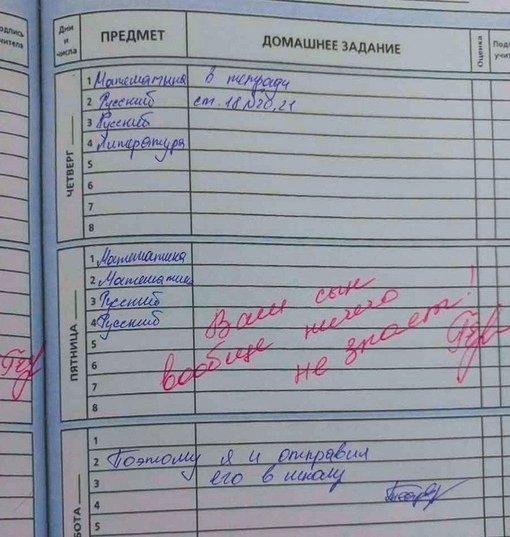 подпись
учителя
Дни
и
числа
ПРЕДМЕТ
ДОМАШНЕЕ ЗАДАНИЕ
Оценка
ЧЕТВЕРГ
1 Математика в тетради
2 Русский ст. 18 №20, 21
3 Русский
4 Литература
5
6
7
8
ПЯТНИЦА
1 Математика
2 Математика
3 Русский
4 Русский
5
6
7
8
Ваш сын
вообще ничего
не знает!
1
2 Поэтому я и отправил
3 его в школу
4
5